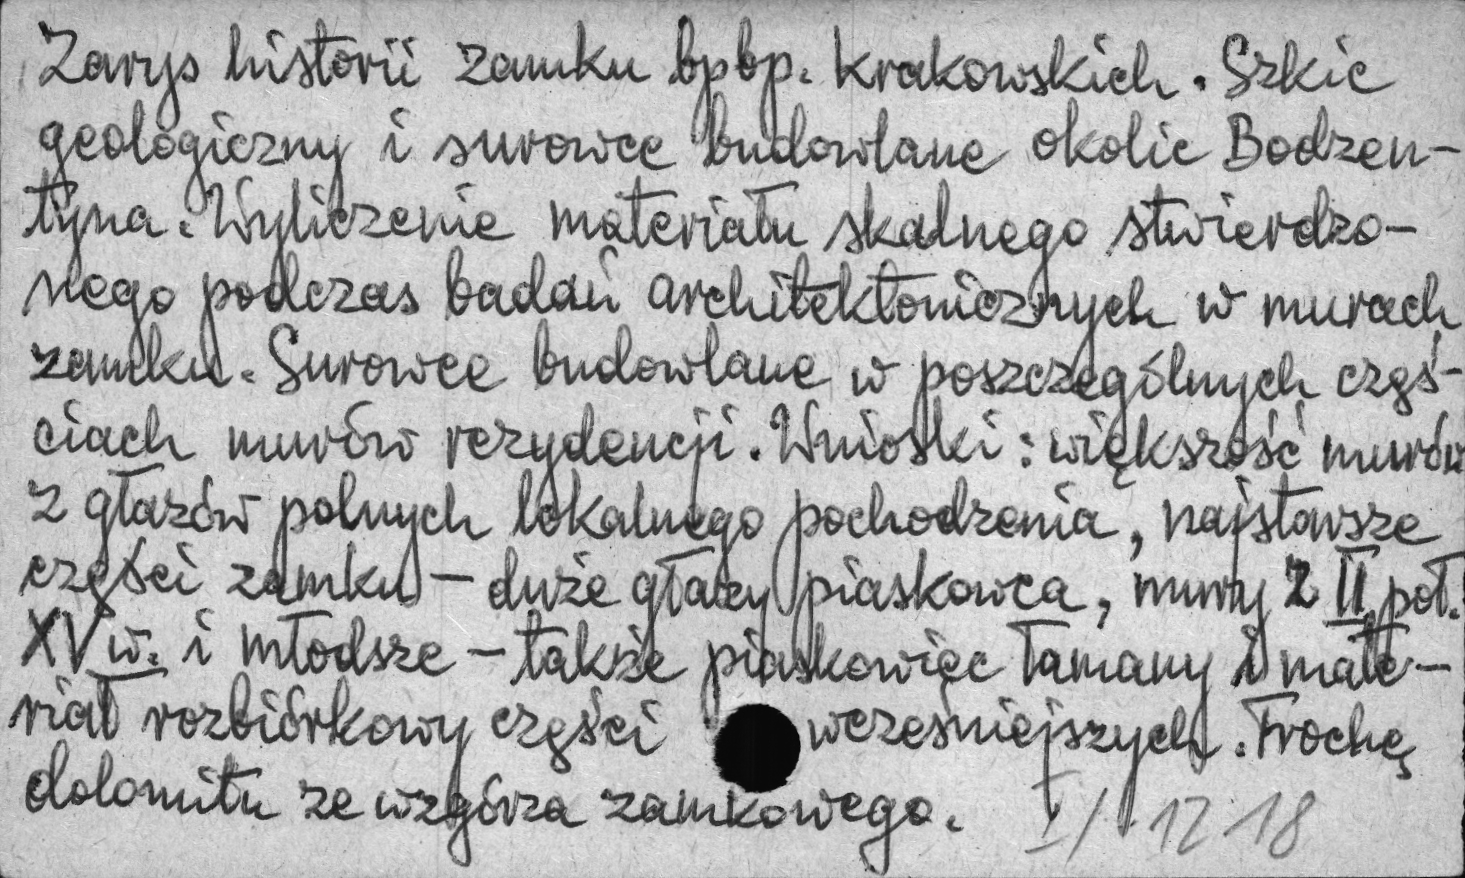 Zarys historii zamku bpbp. krakowskich. Szkic
geologiczny i surowce budowlane okolic Bodzen-
tyna. Wyliczenie materiału skalnego stwierdzo-
nego podczas badań architektonicznych w murach
zamku. Surowce budowlane w poszczególnych częś-
ciach murów rezydencji. Wnioski: większość murów
z głazów polnych lokalnego pochodzenia, najstarsze
części zamku – duże głazy piaskowca, mury z II poł.
XV w. i młodsze – także piaskowiec łamany i mate-
riał rozbiórkowy części wcześniejszych. Trochę
dolomitu ze wzgórza zamkowego. I/ 12 18